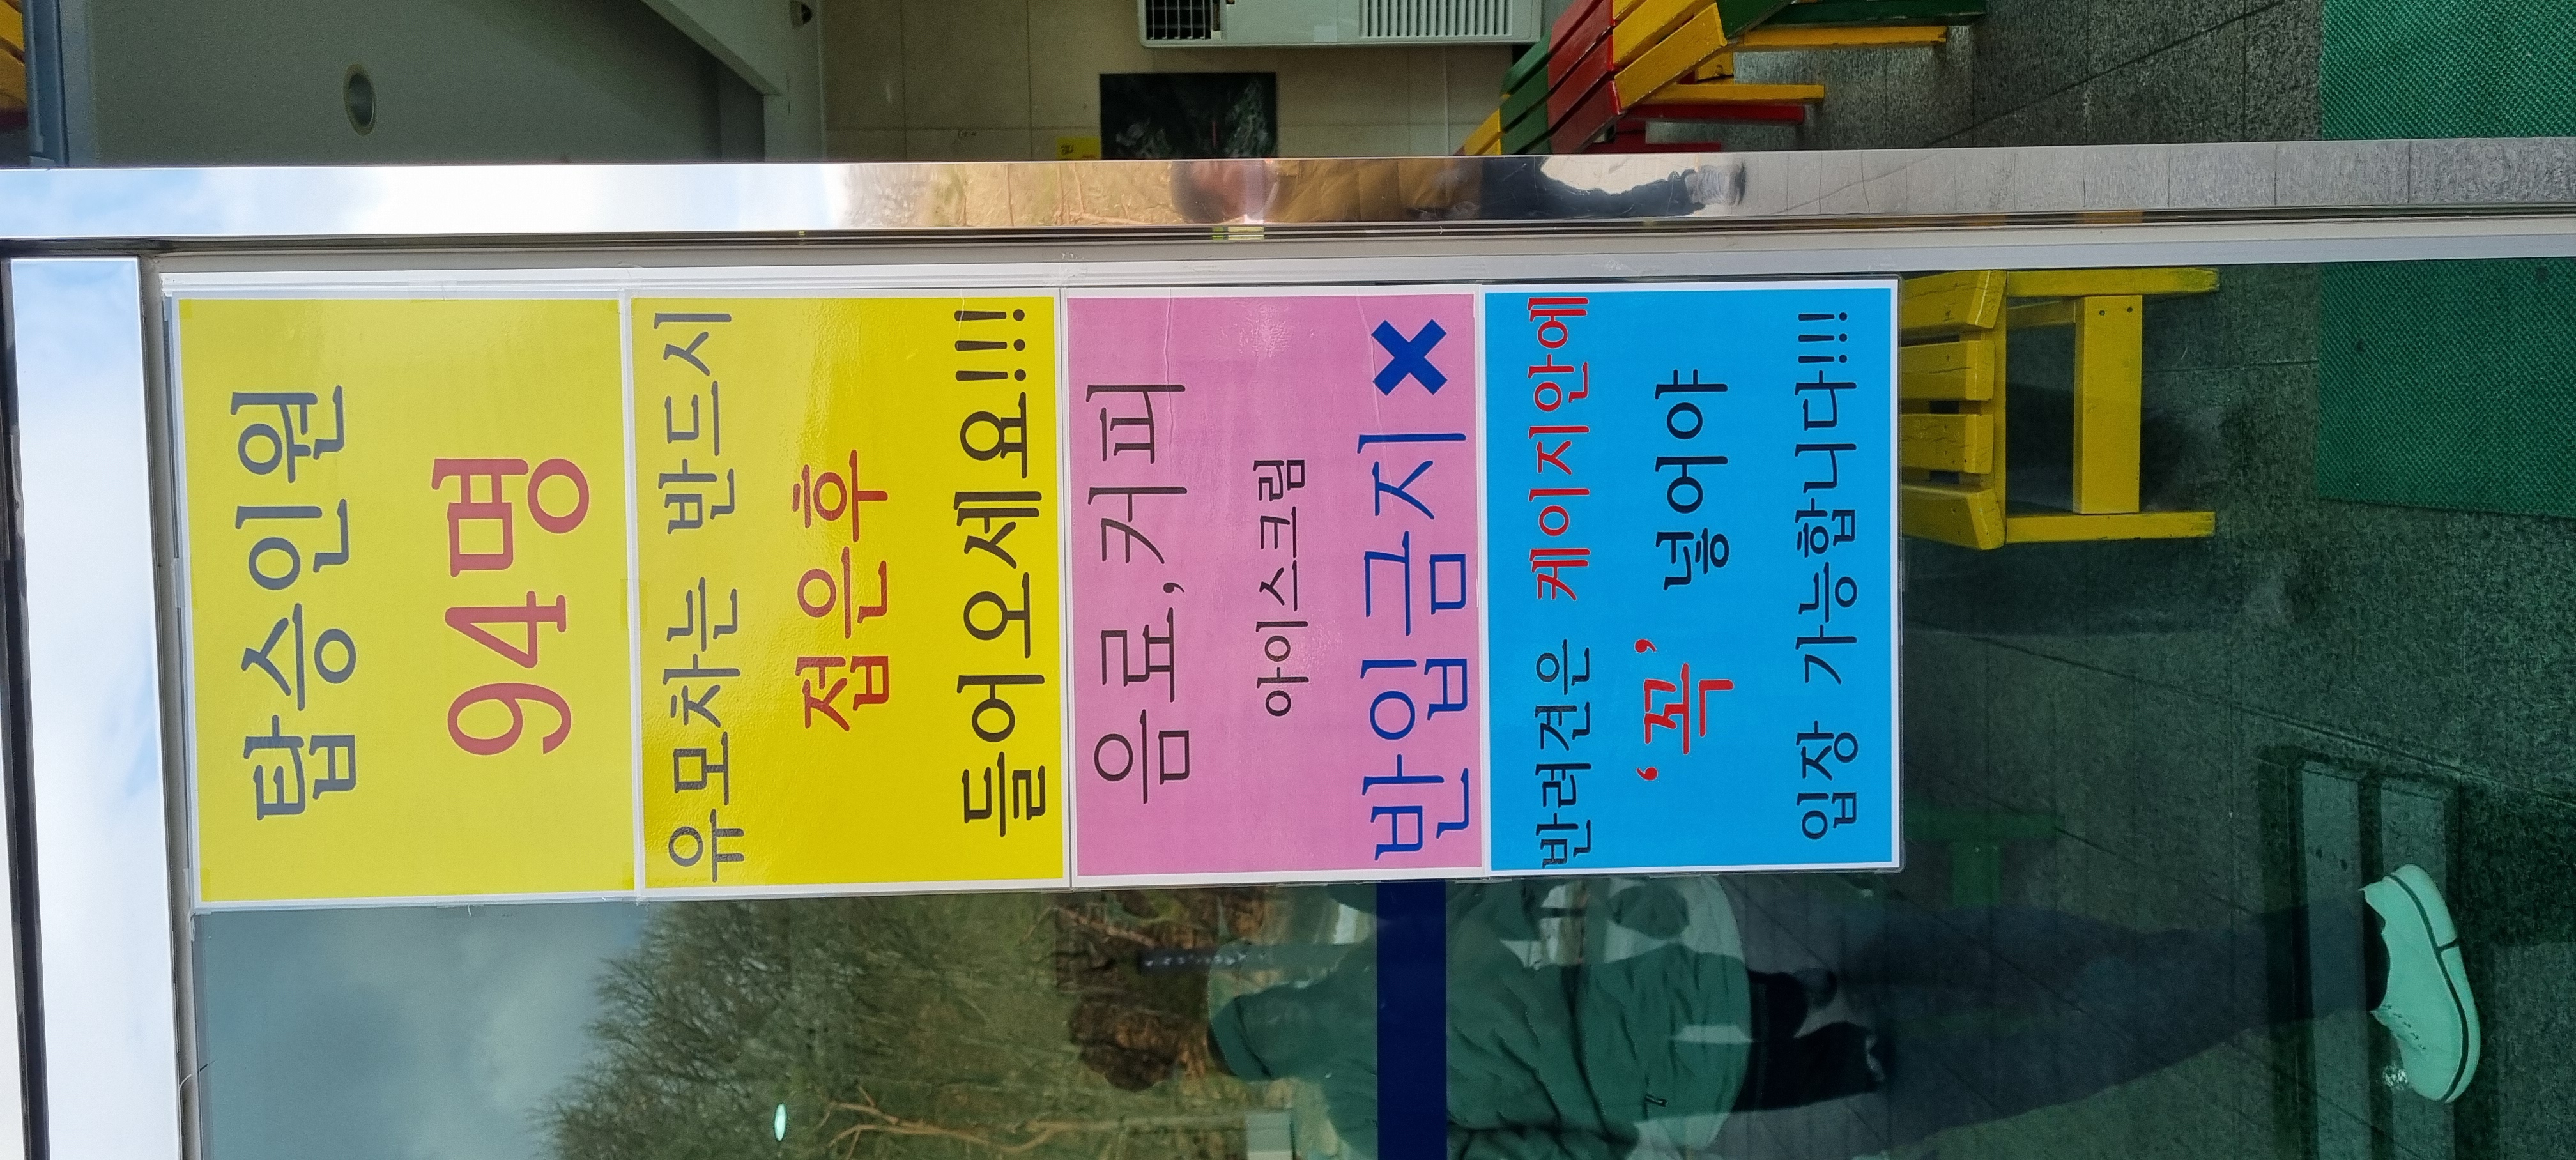 탑승인원
94명
유모차는 반드시
접은후
들어오세요!!!
음료,커피
아이스크림
반입금지✖
반려견은 케이지안에
‘꼭’ 넣어야
입장 가능합니다!!!